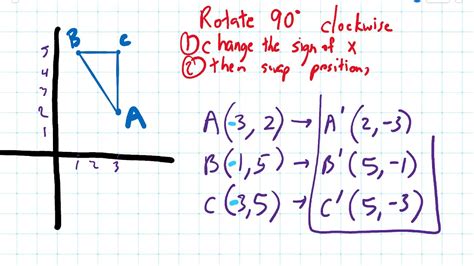 Rotate 90° clockwise
① change the sign of x
② then swap position,
5 B C
4
3
2 A
1
1 2 3
A(-3, 2) → A'(2,-3)
B(-1,5) → B'(5,-1)
C(-3,5) → C'(5,-3)